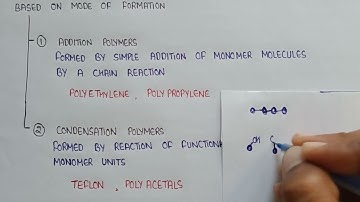 BASED ON MODE OF FORMATION
① ADDITION POLYMERS
FORMED BY SIMPLE ADDITION OF MONOMER MOLECULES
BY A CHAIN REACTION
POLYETHYLENE, POLYPROPYLENE
② CONDENSATION POLYMERS
FORMED BY REACTION OF FUNCTIONA
MONOMER UNITS
TEFLON, POLYACETALS
OH